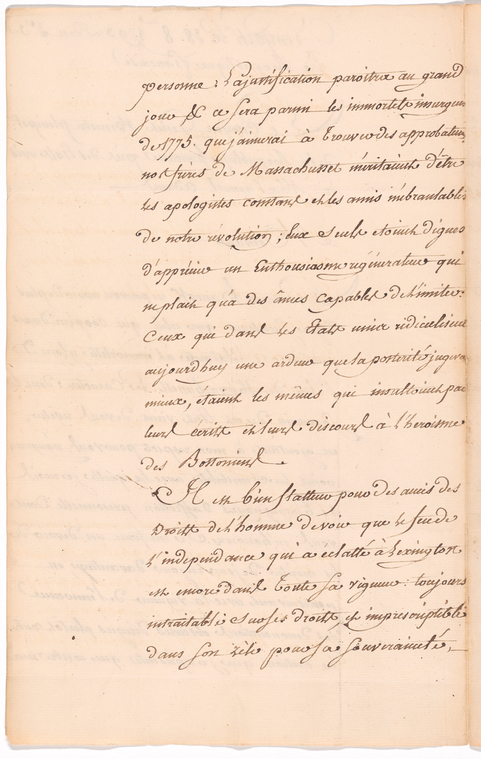 personne: La justification paroitra au grand
jour & ce sera parmi les immortels insurgens
de 1775. que j'aimerai à trouver des approbateurs,
nos frères de Massachusset méritaient d'être
les apologistes constans et les amis inébranlables
de notre révolution; Eux seuls etoient dignes
d'apprécier un Enthousiasme régénérateur qui
ne plait qu'a des âmes capables de l'imiter.
Ceux qui dans les Etats unis ridiculisent
aujourdhuy une ardeur que la postérité jugera
mieux, étaient les mêmes qui insultoient par
leurs écrits et leurs discours à l'heroisme
des Bostoniens.
Il est b'en flatteur pour des amis des
Droits de l'homme de voir que le feu de
L'independance qui a eclatté à Lexington
est encore dans toute sa vigueur: toujours
intraitable sur ses droits & imprescriptible
dans son zèle pour sa souveraineté,